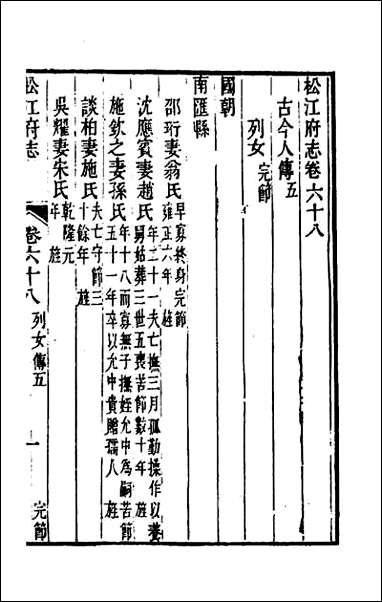 松江府志卷六十八
古今人傳五
列女 完節
國朝
南匯縣
邵珩妻翁氏 早寡終身完節
雍正六年 旌
沈應賓妻趙氏 年二十一夫亡撫三月孤勤操作以養
舅姑葬三世五喪苦節數十年 旌
施欽之妻孫氏 年十八而寡無子撫姪允中為嗣苦節
五十一年卒以允中貴贈孺人 旌
談柏妻施氏 夫亡守節三
十餘年 旌
吳耀妻朱氏 乾隆元
年 旌
松江府志
卷六十八 列女傳五
一
完節